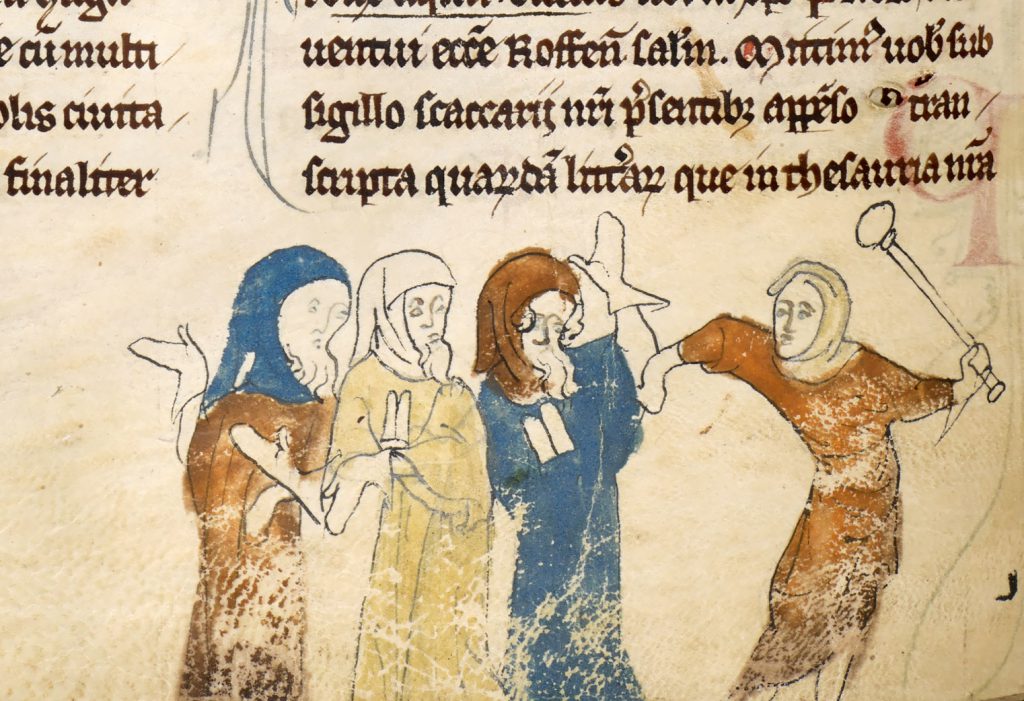 cū multi
ciuita
finaliter
uentui ecc̄e Roffen̄ sal̄m. Mittimꝰ uob̄ sub
sigillo scaccarij nr̄i p̄sentibꝫ app̄eso tran
scripta quaꝝdā litt̄aꝝ que in thesauria nr̄a